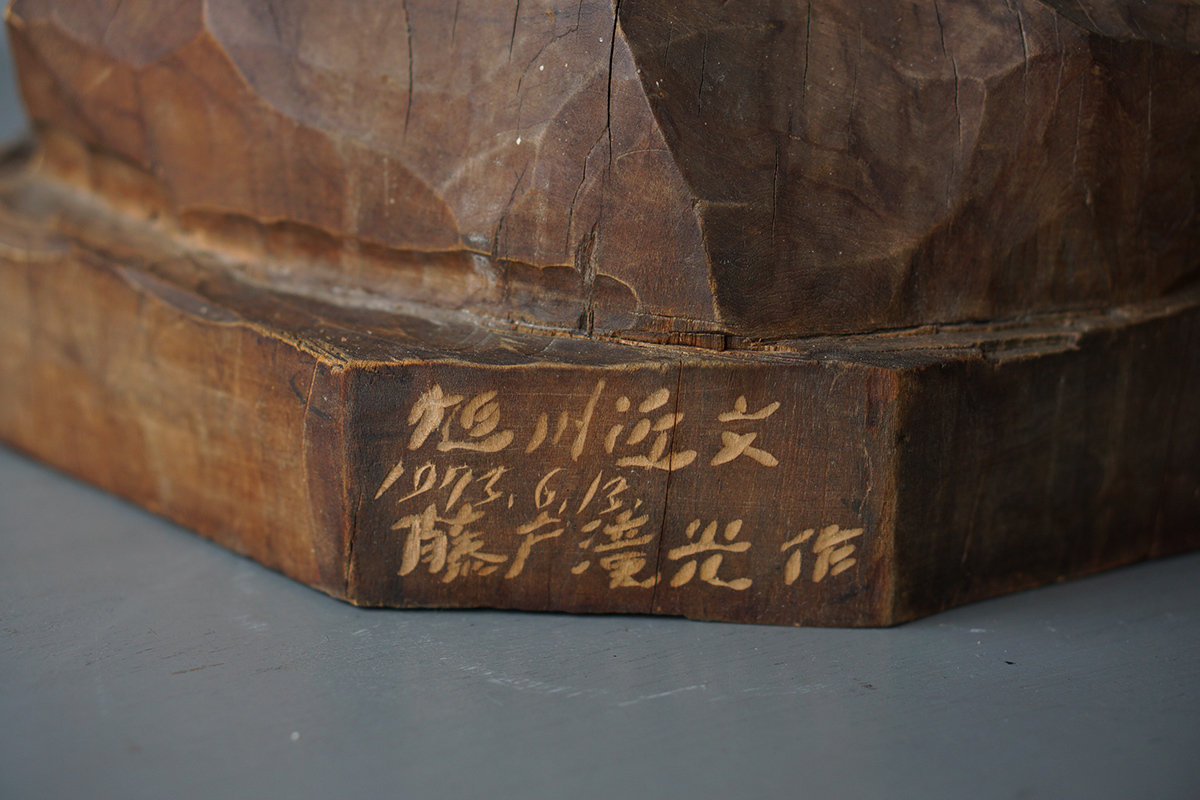 旭川近文
1973.6.13.
藤戸滝光 作